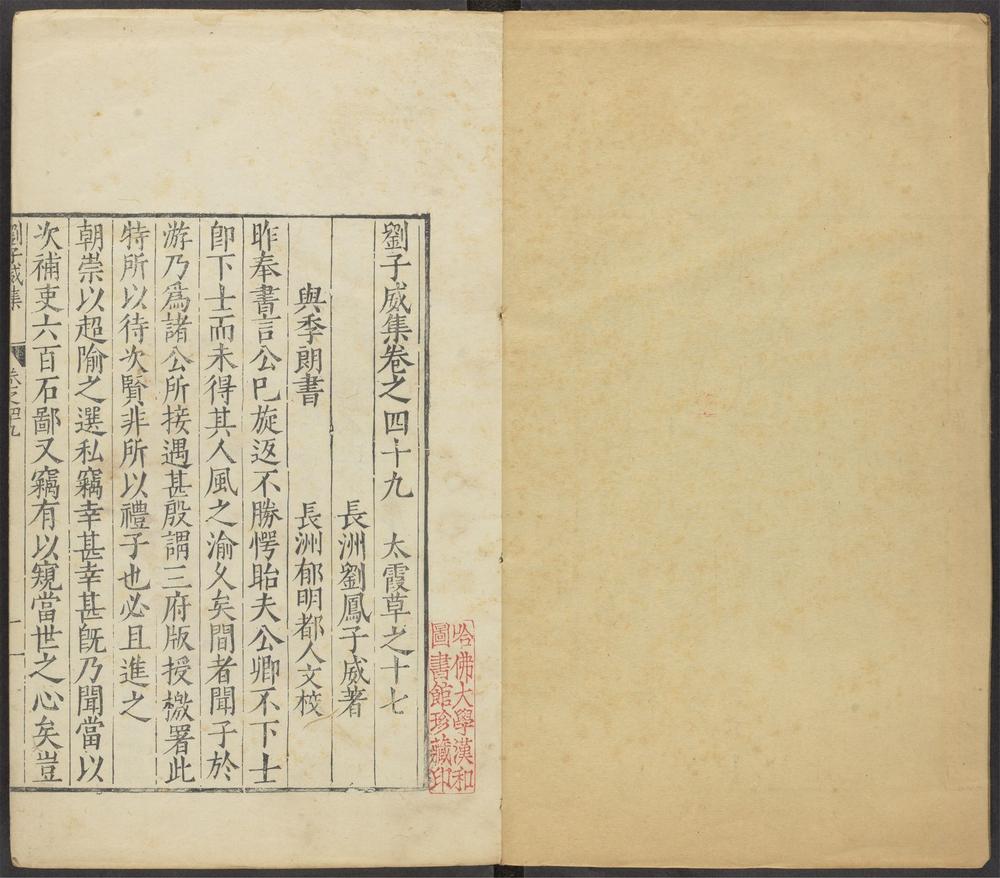 劉子威集卷之四十九　太霞草之十七
長洲劉鳳子威著
與季朗書　長洲郁明都人文校
昨奉書言公巳旋返不勝愕眙夫公卿不下士
卽下士而未得其人風之渝久矣間者聞子於
游乃爲諸公所接遇甚殷謂三府版授檄署此
特所以待次賢非所以禮子也必且進之
朝崇以超隃之選私竊幸甚幸甚旣乃聞當以
次補吏六百石鄙又竊有以窺當世之心矣豈
劉子威集　卷之四十九　一
哈佛大學漢和
圖書館珍藏印